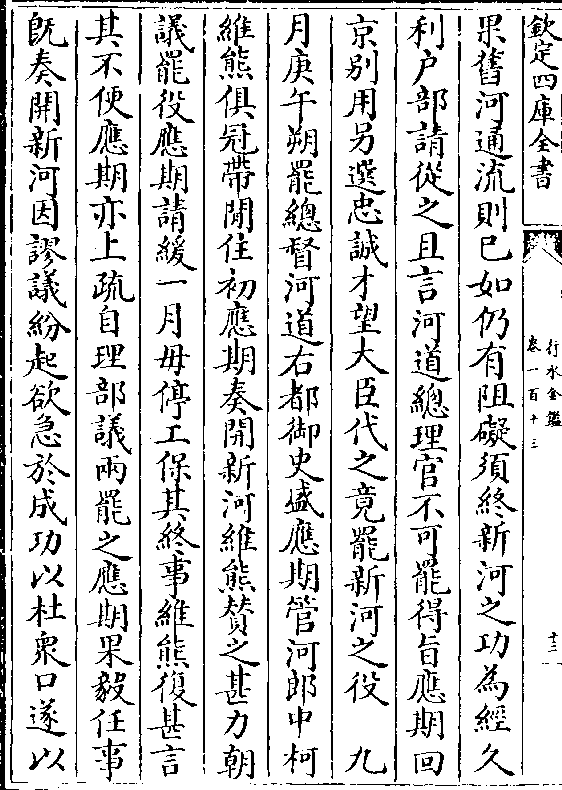 欽定四庫全書
行水金鑑
卷一百十三
十三
果舊河通流則已如仍有阻礙須終新河之功為經久
利户部請從之且言河道總理官不可罷得㫖應期回
京别用另選忠誠才望大臣代之竟罷新河之役 九
月庚午朔罷總督河道右都御史盛應期管河郎中柯
維熊俱冠帶閒住初應期奏開新河維熊贊之甚力朝
議罷役應期請緩一月毋停工保其終事維熊復甚言
其不便應期亦上疏自理部議兩罷之應期果毅任事
既奏開新河因謬議紛起欲急於成功以杜衆口遂以